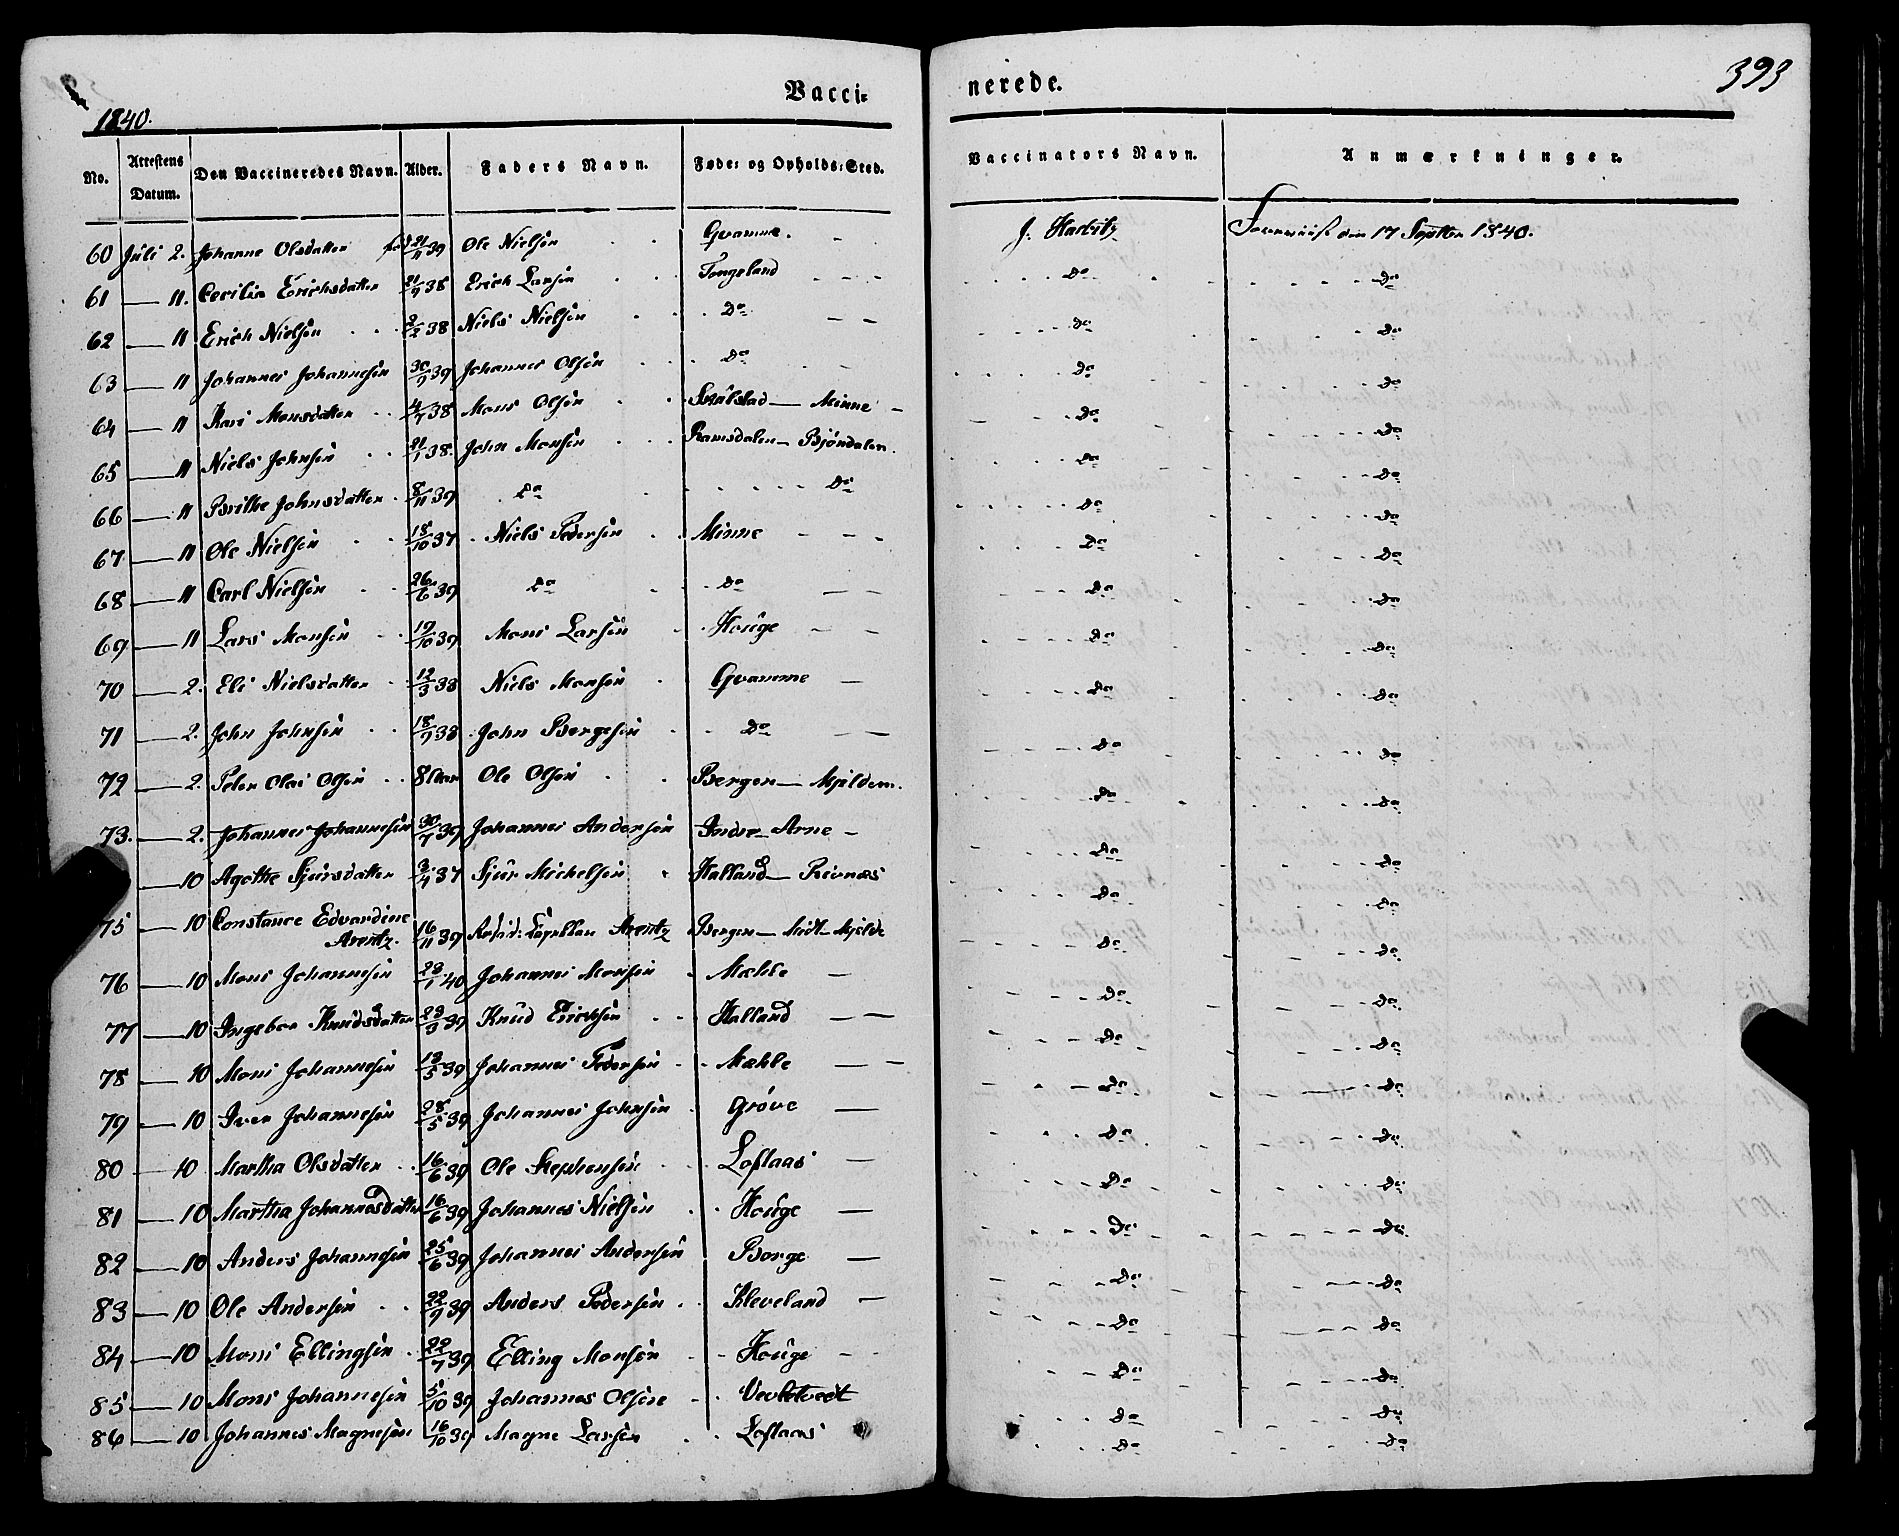 Vacci-
nerede.
393
1840.
No. Attestens Datum. Den Vaccineredes Navn. Alder. Faders Navn. Føde- og Opholds-Sted. Vaccinators Navn. Anmærkninger.
60 Juli 2. Johanne Olsdatter fød 21/11 39 Ole Nielsen Gvamme. J. Harbitz den 17 Septbr 1840.
61 — 11. Cecilia Erichsdatter 21/9 38 Erich Larsen Tongeland do do
62 — 11 Erich Nielsen 2/2 38 Niels Nielsen do do do
63 — 11 Johannes Johannesen 30/9 39 Johannes Olsen do do do
64 — 11 Kari Monsdatter 4/7 38 Mons Olsen — Minne do do
65 — 11 Niels Johnsen 21/1 38. John Monsen Ramsdalen — Bjöndalen. do do
66 — 11 Brithe Johnsdatter 8/11 39 do do do do
67 — 11 Ole Nielsen 18/10 37 Niels Pedersen Minne do do
68 — 11 Carl Nielsen 26/6 39 do do do do
69 — 11 Lars Monsen 19/10 39 Mons Larsen Houge do do
70 — 2. Eli Nielsdatter 12/3 38 Niels Monsen Gvamme do do
71 — 2. John Johnsen 18/9 38 John Bergesen do do do
72 — 2. Peter Olai Olsen 8 Ole Olsen Bergen — Mjeldem. do do
73. — 2. Johannes Johannesen 30/7 39 Johannes Andersen Indre Arne do do
— 10 Agathe Sjursdatter 3/4 37 Sjur Michelsen Halland — Revnæs do do
75 — 10 Constance Edvardine
Arentz. 16/11 39 Resid: Capellan Arentz Bergen — Midt-Mjelde do do
76 — 10 Mons Johannesen 23/1 40 Johannes Monsen Mæhle do do
77 — 10 Ingebor Knudsdatter 23/9 39 Knud Erichsen Halland do do
78 — 10 Mons Johannesen 13/5 39 Johannes Pedersen Mæhle do do
79 — 10 Iver Johannesen 28/5 39 Johannes Johnsen Gröve do do
80 — 10 Martha Olsdatter 16/6 39 Ole Stephensen Loftaas do do
81 — 10 Martha Johannesdatter 16/6 39 Johannes Nielsen Houge do do
82 — 10 Anders Johannesen 25/6 39 Johannes Andersen Borge do do
83 — 10 Ole Andersen 22/9 39 Anders Pedersen Kleveland do do
84 — 10 Mons Ellingsen 22/7 39 Elling Monsen Houge do do
85 — 10 Mons Johannesen 5/10 39 Johannes Olsen Vevletvedt do do
86 — 10 Johannes Magnesen 16/10 39 Magne Larsen Loftaas do do